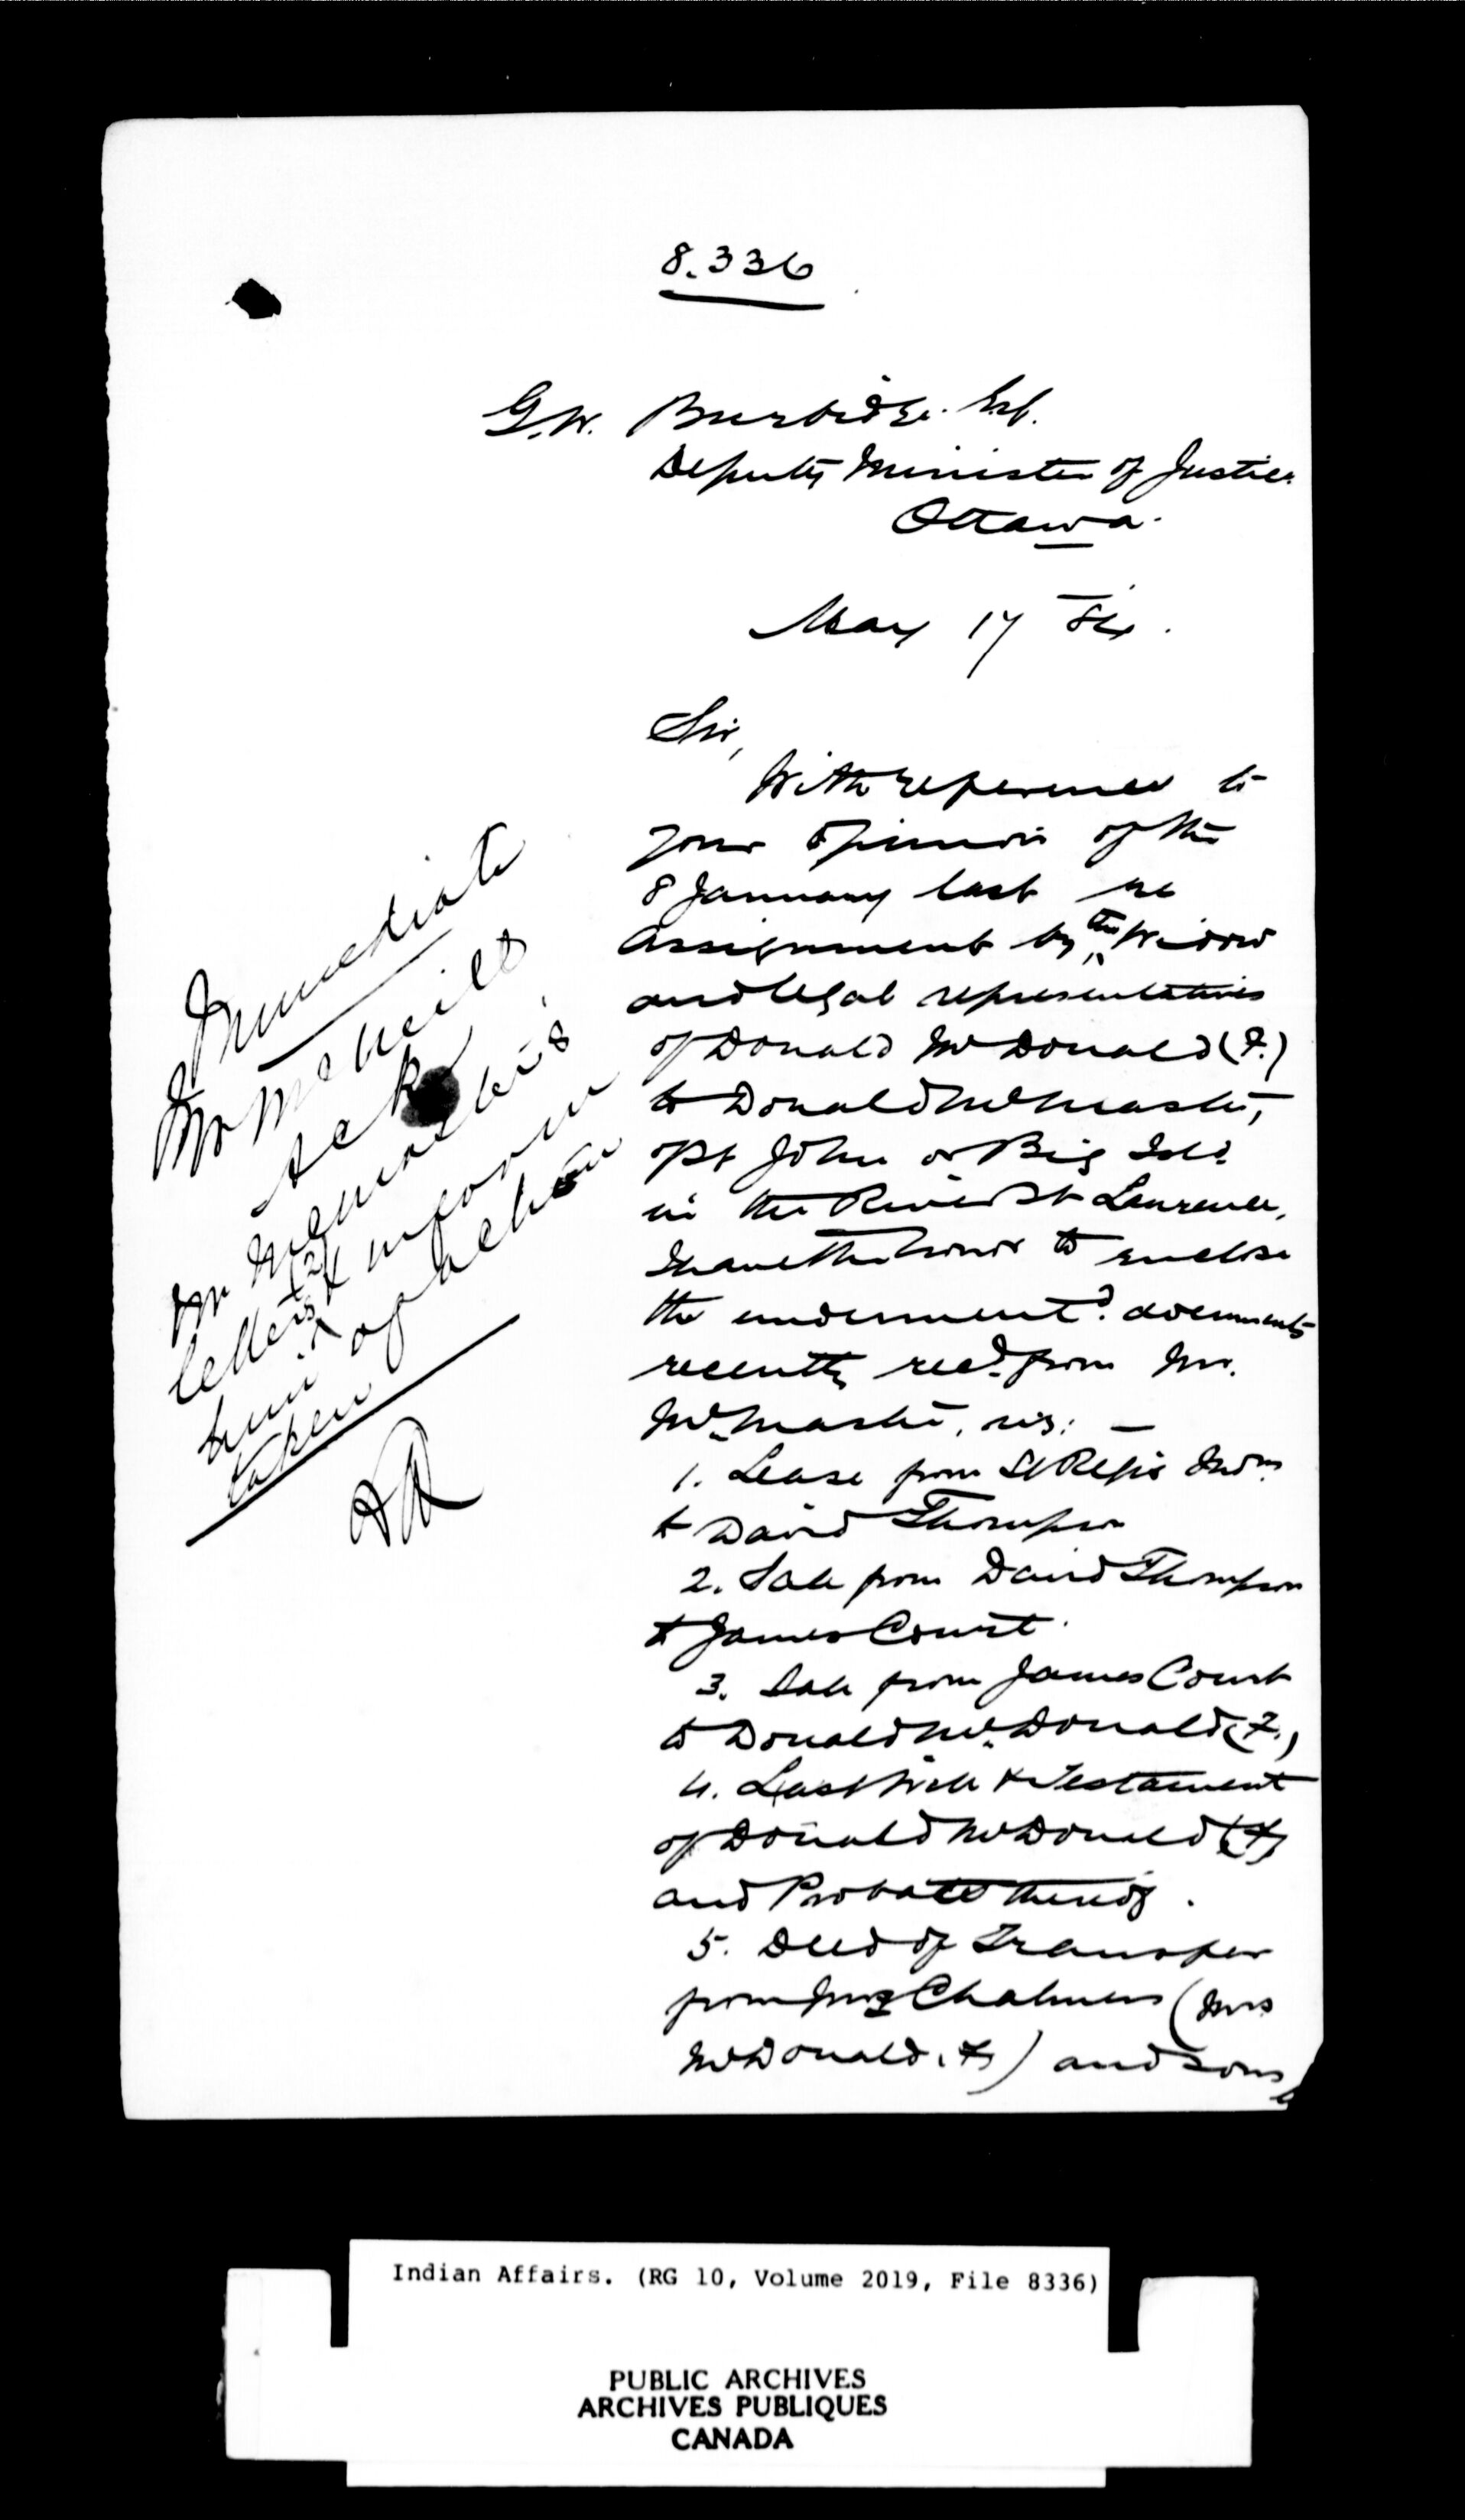 8.336
G.W. Burbidge. Esq.
Deputy Minister of Justice
Ottawa.
May 17
Sir,
With reference to
your opinion of the
8 January last re
assignment by the Widow
and legal representatives
of Donald McDonald (F.)
to Donald McMaster,
of St John or Big Isld.
in the River St Lawrence,
I have the honor to enclose
the undermentd. documents
recently recd. from Mr.
McMaster, viz: —
1. Lease from St Regis Indns
to David Thompson
2. Sale from David Thompson
to James Court.
3. Sale from James Court
to Donald McDonald (F.)
4. Last Will & Testament
of Donald McDonald (F)
and Probate thereof.
5. Deed of Transfer
from Mrs Chalmers (Mrs
McDonald. F) and sons
Immediate
Mr McNeill
Ack
Mr McMaster's
letters (2) & inform
him of action
taken
Indian Affairs. (RG 10, Volume 2019, File 8336)
PUBLIC ARCHIVES
ARCHIVES PUBLIQUES
CANADA